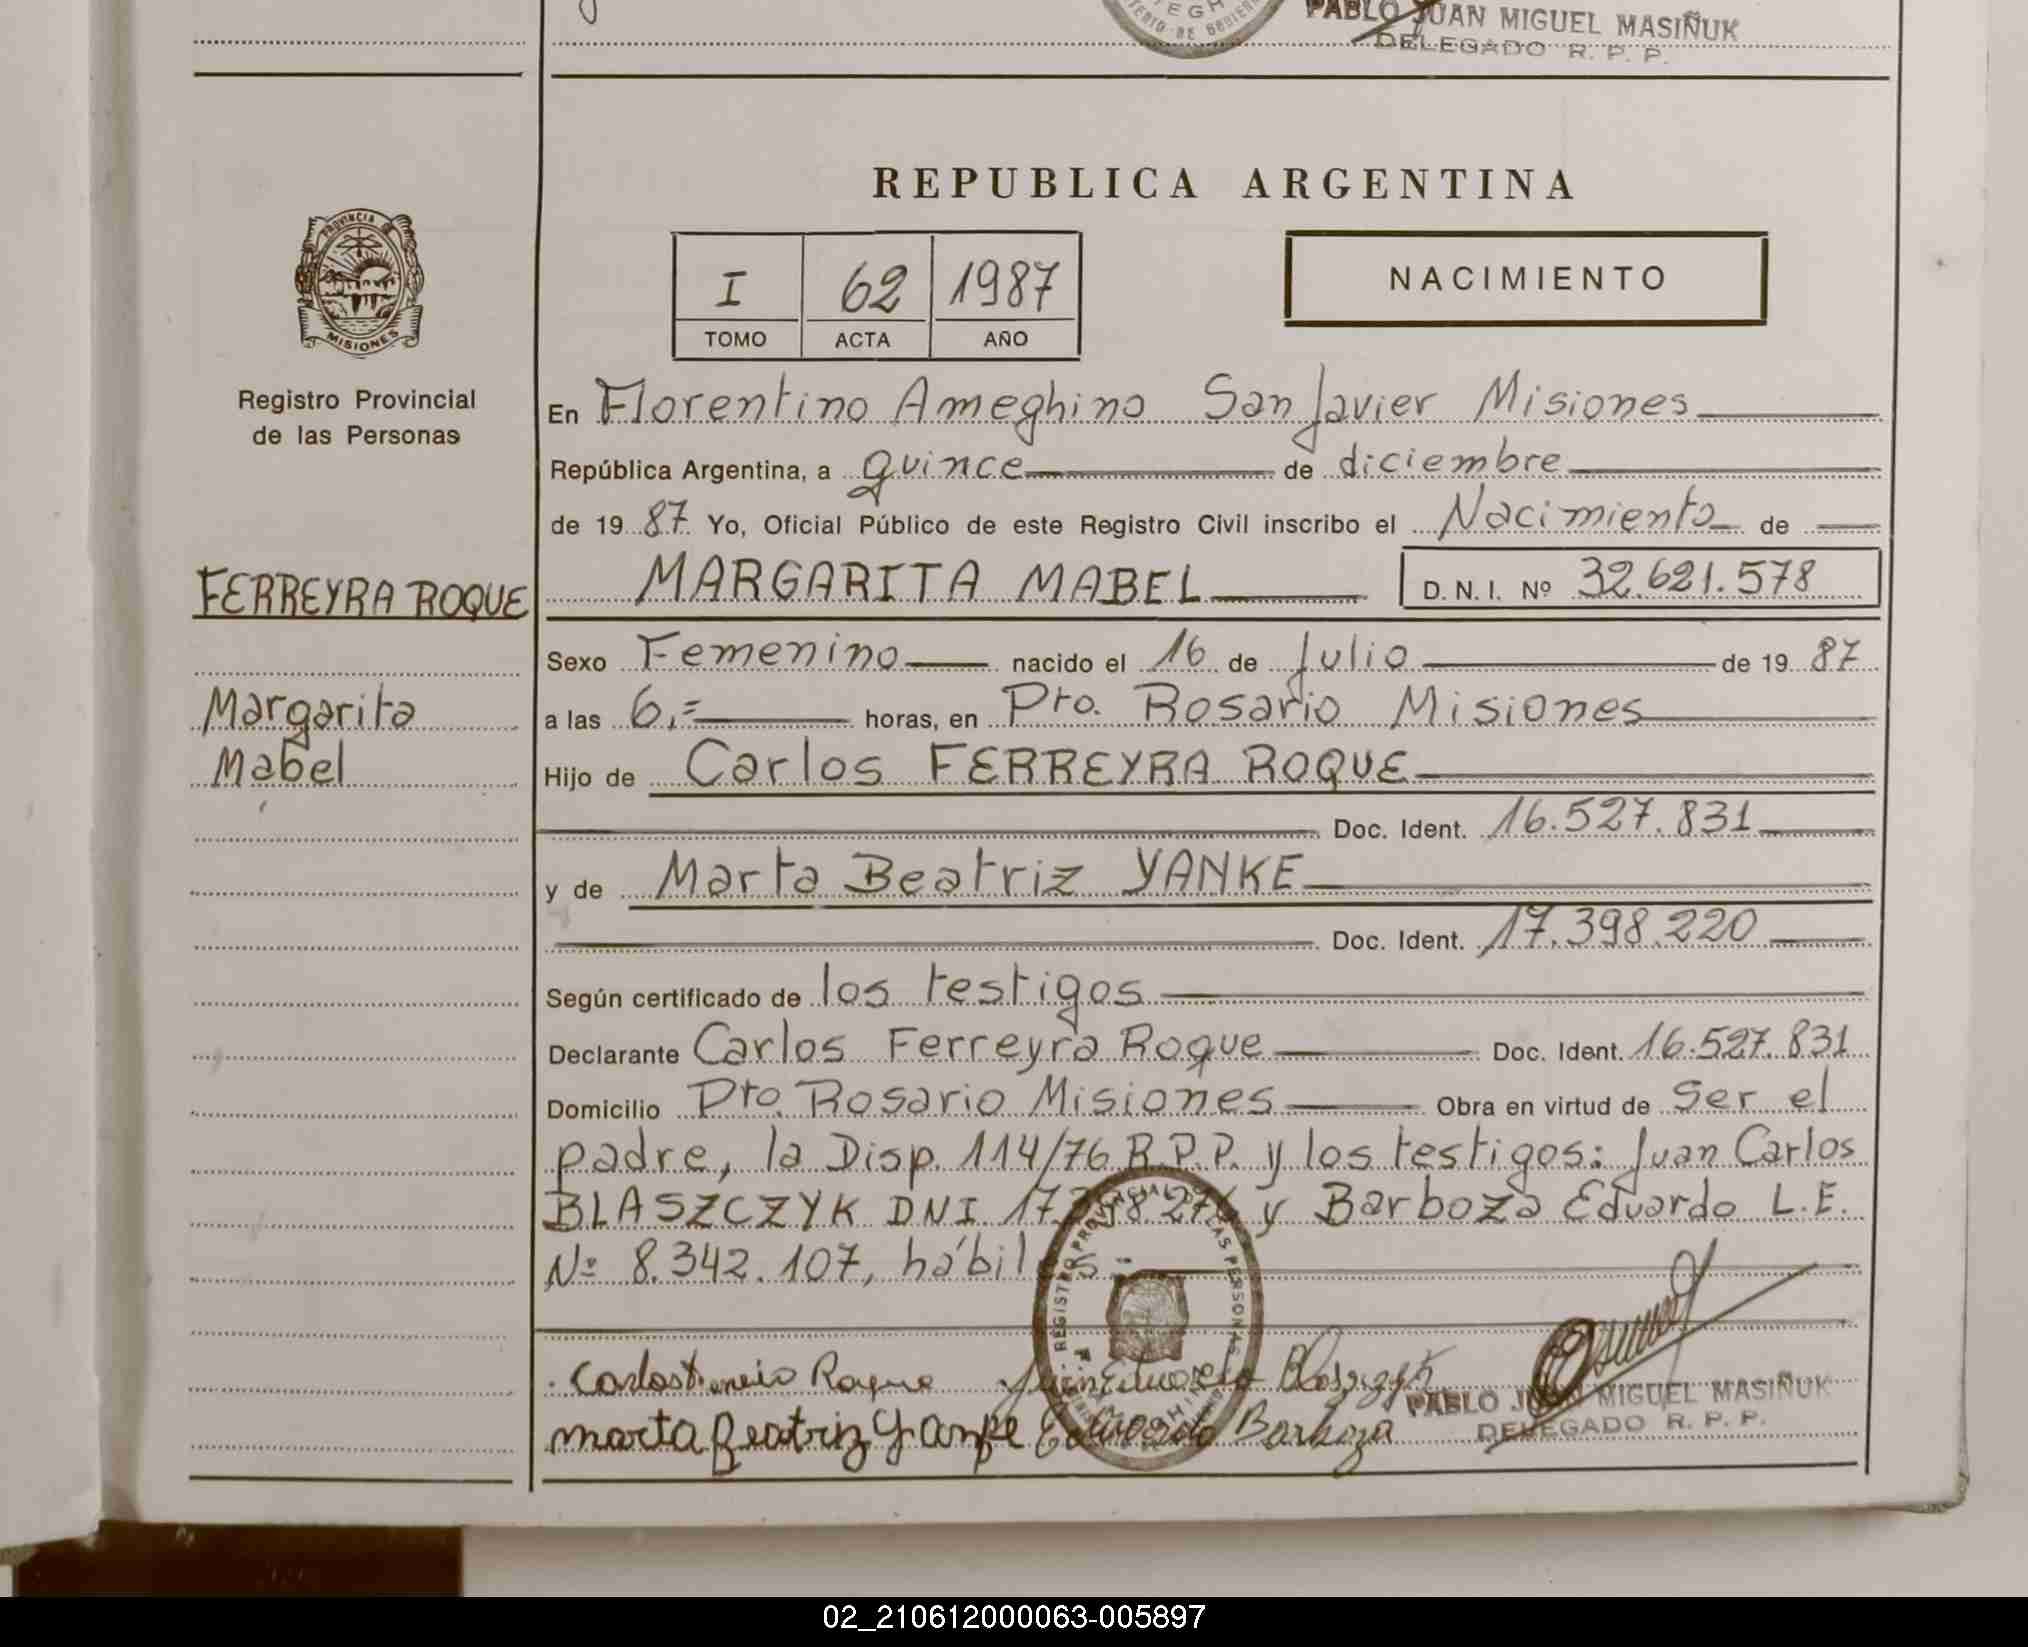 PABLO JUAN MIGUEL MASIÑUK
DELEGADO R. P. P.
REPUBLICA ARGENTINA
PROVINCIA DE
MISIONES
I 62 1987
TOMO ACTA AÑO
NACIMIENTO
Registro Provincial
de las Personas
En Florentino Ameghino San Javier Misiones
República Argentina, a quince de diciembre
de 19 87 Yo, Oficial Público de este Registro Civil inscribo el Nacimiento de
FERREYRA ROQUE
MARGARITA MABEL D.N.I. Nº 32.621.578
Sexo Femenino nacido el 16 de Julio de 19 87
Margarita
Mabel
a las 6,= horas, en Pto. Rosario Misiones
Hijo de Carlos FERREYRA ROQUE
Doc. Ident. 16.527.831
y de Marta Beatriz YANKE
Doc. Ident. 17.398.220
Según certificado de los testigos
Declarante Carlos Ferreyra Roque Doc. Ident. 16.527.831
Domicilio Pto. Rosario Misiones Obra en virtud de Ser el
padre, la Disp. 114/76 R.P.P. y los testigos: Juan Carlos
BLASZCZYK DNI y Barboza Eduardo L.E.
Nº 8.342.107, hábiles
REGISTRO PROVINCIAL DE LAS PERSONAS
Carlos Roque Juan Blaszczyk
Marta Beatriz Yanke Eduardo Barboza
PABLO JUAN MIGUEL MASIÑUK
DELEGADO R. P. P.
02_210612000063-005897